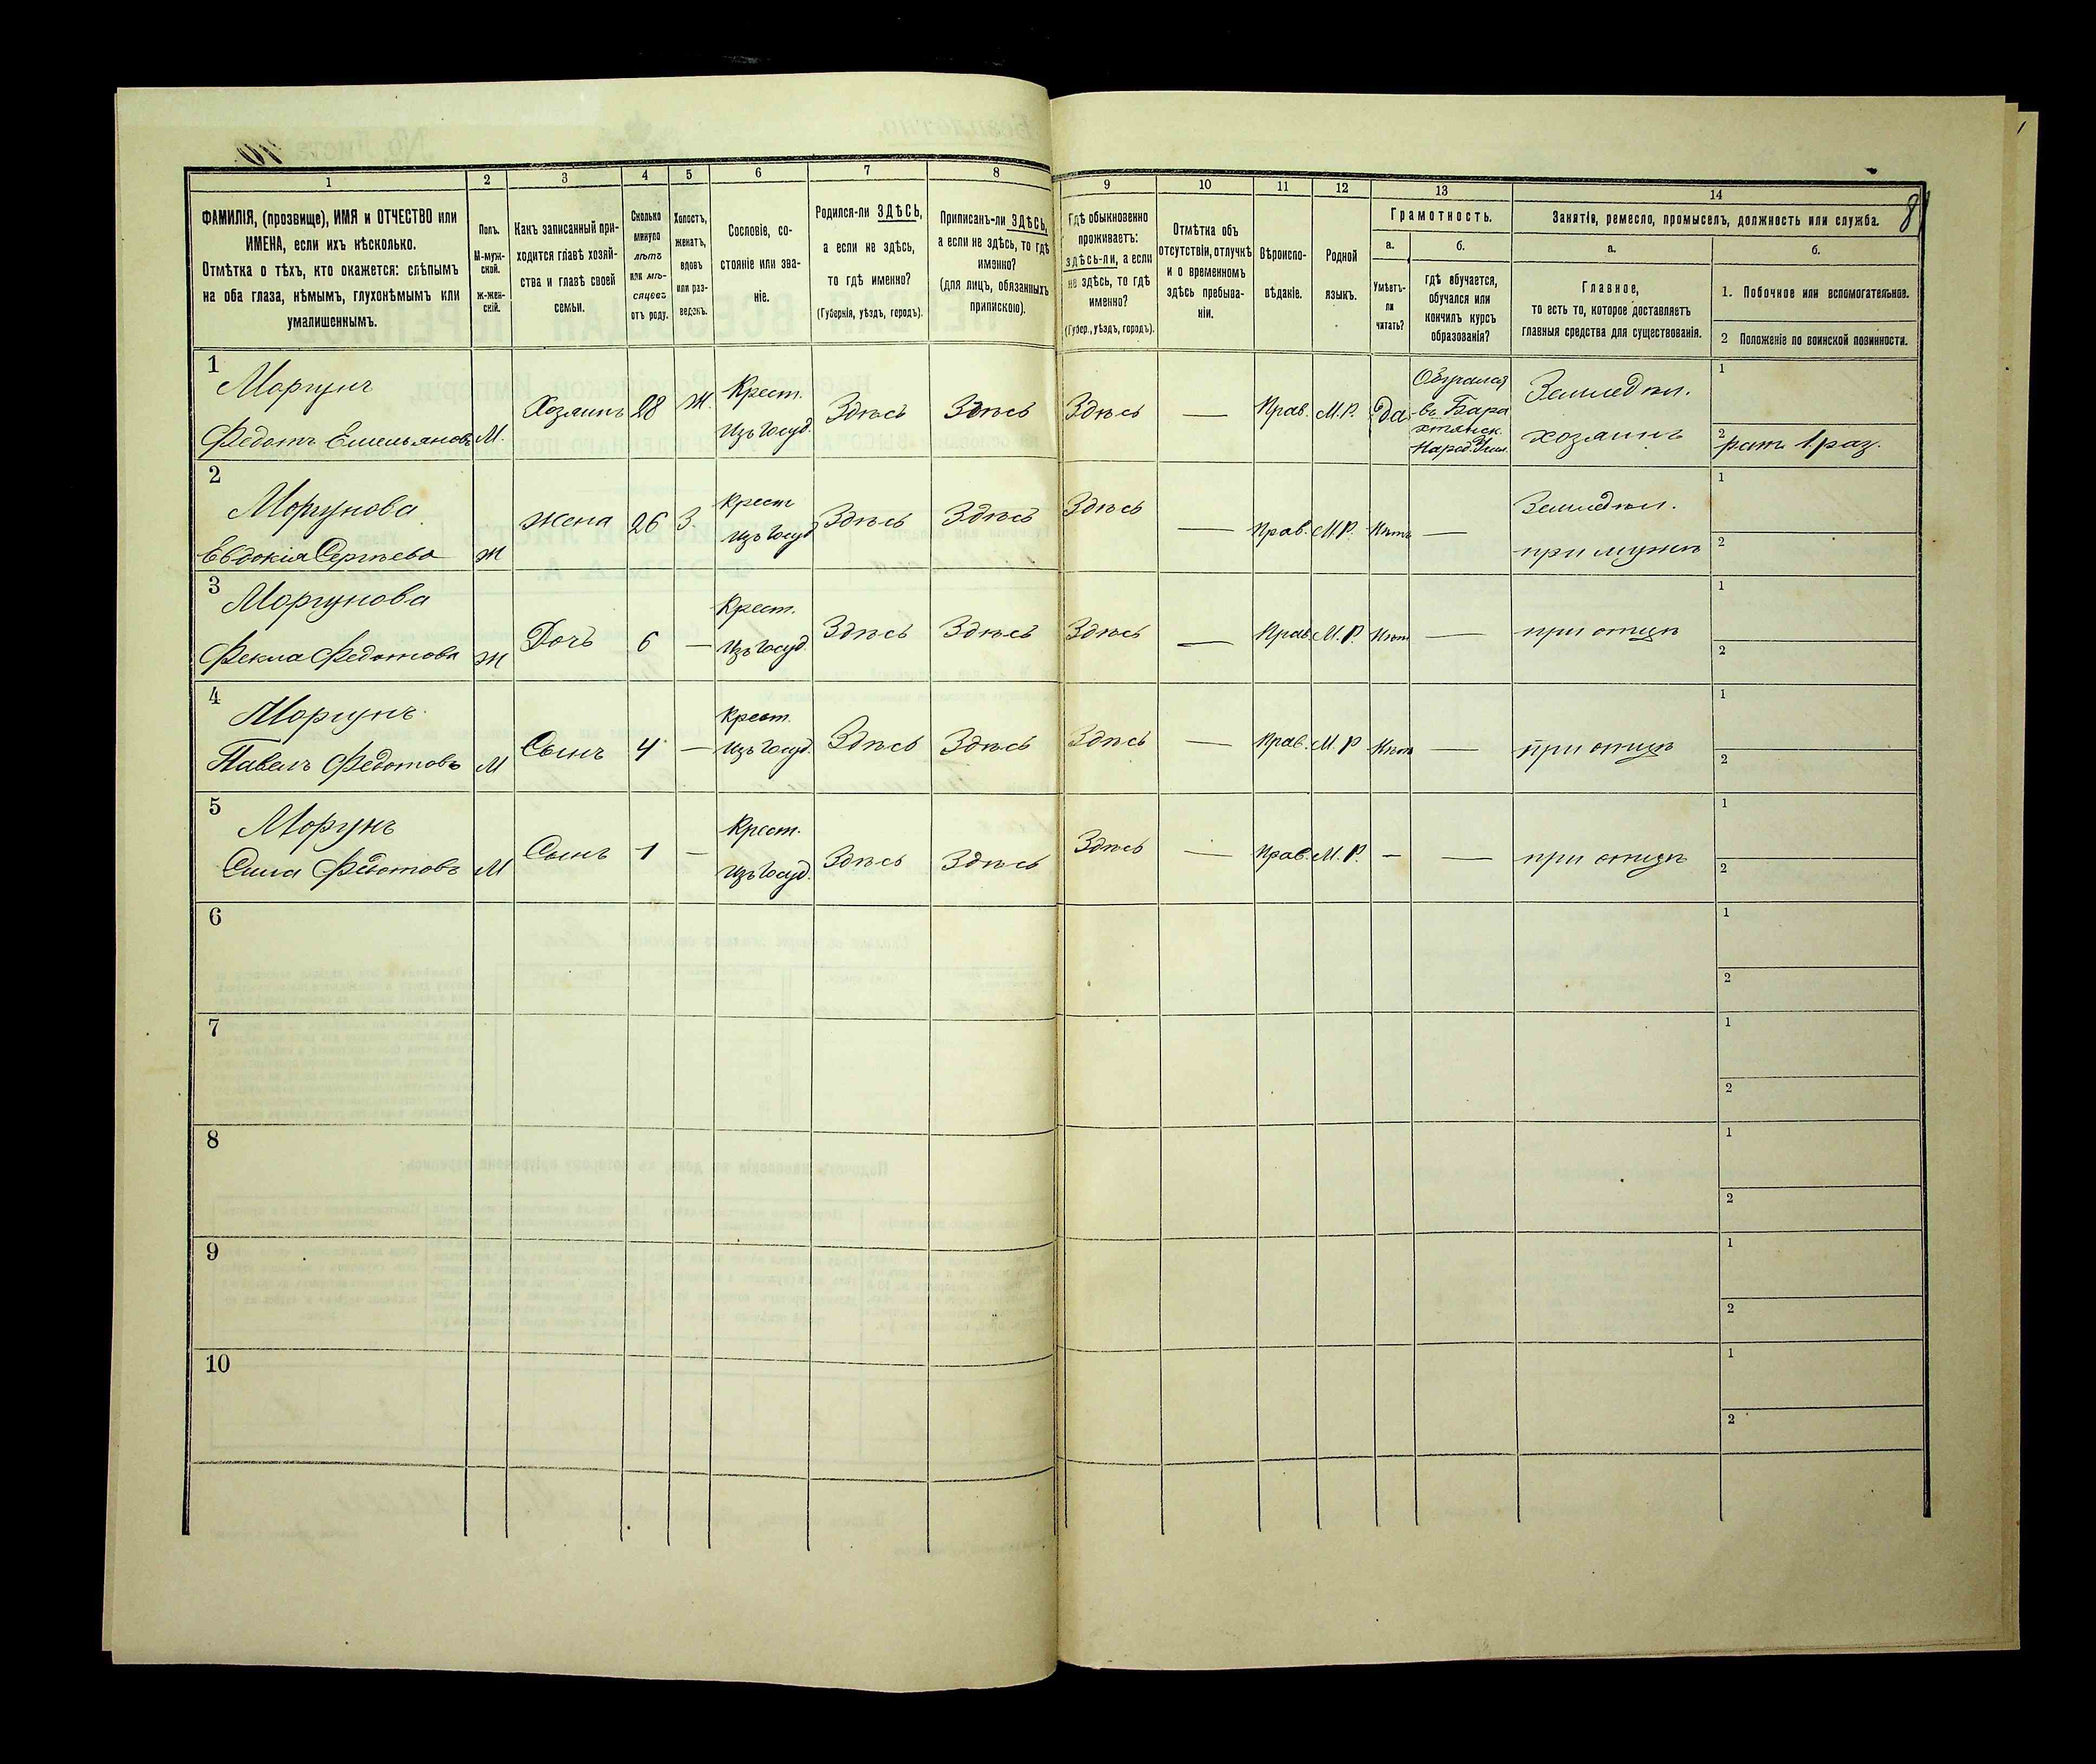 1 2 3 4 5 6 7 8 9 10 11 12 13 14
8
ФАМИЛІЯ, (прозвище), ИМЯ и ОТЧЕСТВО или
ИМЕНА, если ихъ нѣсколько.
Отмѣтка о тѣхъ, кто окажется: слѣпымъ
на оба глаза, нѣмымъ, глухонѣмымъ или
умалишеннымъ.
Полъ.
М-муж-
ской.
ж-жен-
скій.
Какъ записанный при-
ходится главѣ хозяй-
ства и главѣ своей
семьи.
Сколько
минуло
лѣтъ
или мѣ-
сяцевъ
отъ роду.
Холостъ,
женатъ,
вдовъ
или раз-
веденъ.
Сословіе, со-
стояніе или зва-
ніе.
Родился-ли ЗДѢСЬ,
а если не здѣсь,
то гдѣ именно?
(Губернія, уѣздъ, городъ).
Приписанъ-ли ЗДѢСЬ,
а если не здѣсь, то гдѣ
именно?
(для лицъ, обязанныхъ
припискою).
Гдѣ обыкновенно
проживаетъ:
здѣсь-ли, а если
не здѣсь, то гдѣ
именно?
(Губер., уѣздъ, городъ).
Отмѣтка объ
отсутствіи, отлучкѣ
и о временномъ
здѣсь пребыва-
ніи.
Вѣроиспо-
вѣданіе.
Родной
языкъ.
Грамотность.
а.
Умѣетъ-
ли
читать?
б.
гдѣ обучается,
обучался или
кончилъ курсъ
образованія?
Занятіе, ремесло, промыселъ, должность или служба.
а.
Главное,
то есть то, которое доставляетъ
главныя средства для существованія.
б.
1. Побочное или вспомогательное.
2 Положеніе по воинской повинности.
1
Моргунъ
Федотъ Емельяновъ
М.
Хозяинъ
28
Ж.
Крест.
Изъ Госуд.
Здѣсь
Здѣсь
Здѣсь
—
Прав.
М.Р.
Да
Обучался
въ Бара
хтянск.
Народ. Учил.
Земледѣл.
хозяинъ
1
2
рат. 1 раз.
2
Моргунова
Евдокія Сергѣева
Ж
Жена
26
З.
Крест
Изъ Госуд
Здѣсь
Здѣсь
Здѣсь
—
Прав.
М.Р.
Нѣтъ
—
Земледѣл.
при мужѣ
1
2
3
Моргунова
Фекла Федотова
Ж
Дочь
6
—
Крест.
Изъ Госуд.
Здѣсь
Здѣсь
Здѣсь
—
Прав.
М.Р.
Нѣт
—
при отцѣ
1
2
4
Моргунъ
Павелъ Федотовъ
М
Сынъ
4
—
Крест.
Изъ Госуд.
Здѣсь
Здѣсь
Здѣсь
—
Прав.
М.Р
Нѣт
—
при отцѣ
1
2
5
Моргунъ
Сила Федотовъ
М
Сынъ
1
—
Крест.
Изъ Госуд.
Здѣсь
Здѣсь
Здѣсь
—
Прав.
М.Р.
—
—
при отцѣ
1
2
6
1
2
7
1
2
8
1
2
9
1
2
10
1
2